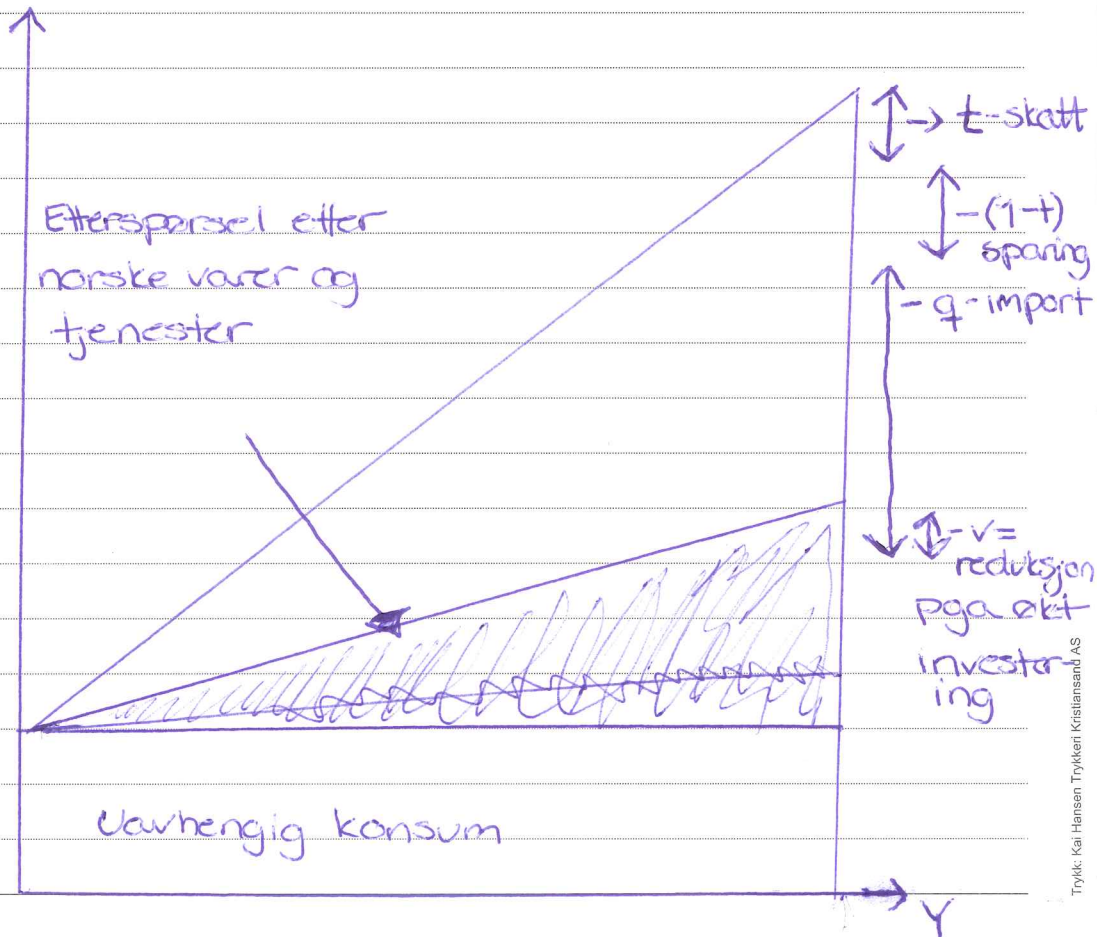 Etterspørsel etter
norske varer og
tjenester
-> t-skatt
-(1-t)
sparing
- q-import
-v=
reduksjon
pga økt
invester-
ing
Uavhengig konsum
Y
Trykk: Kai Hansen Trykkeri Kristiansand AS